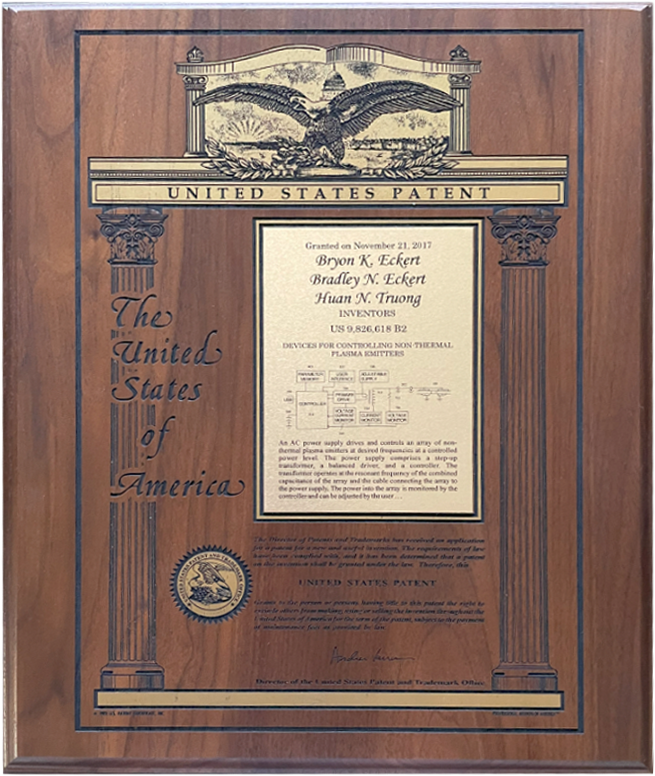 UNITED STATES PATENT
The
United
States
of
America
Granted on November 21, 2017
Bryon K. Eckert
Bradley N. Eckert
Huan N. Truong
INVENTORS
US 9,826,618 B2
DEVICES FOR CONTROLLING NON-THERMAL
PLASMA EMITTERS
PARAMETER MEMORY
USER INTERFACE
ADJUSTABLE SUPPLY
CONTROLLER
POWER DRIVE
VOLTAGE CURRENT MONITOR
CURRENT MONITOR
VOLTAGE MONITOR
An AC power supply drives and controls an array of non-
thermal plasma emitters at desired frequencies at a controlled
power level. The power supply comprises a step-up
transformer, a balanced driver, and a controller. The
transformer operates at the resonant frequency of the combined
capacitance of the array and the cable connecting the array to
the power supply. The power into the array is monitored by the
controller and can be adjusted by the user ...
The Director of Patents and Trademarks has received an application
for a patent for a new and useful invention. The requirements of law
have been complied with, and it has been determined that a patent
on the invention shall be granted under the law. Therefore, this
UNITED STATES PATENT
Grants to the person or persons having title to this patent the right to
exclude others from making, using or selling the invention throughout the
United States of America for the term of the patent, subject to the payment
of maintenance fees as provided by law.
Director of the United States Patent and Trademark Office